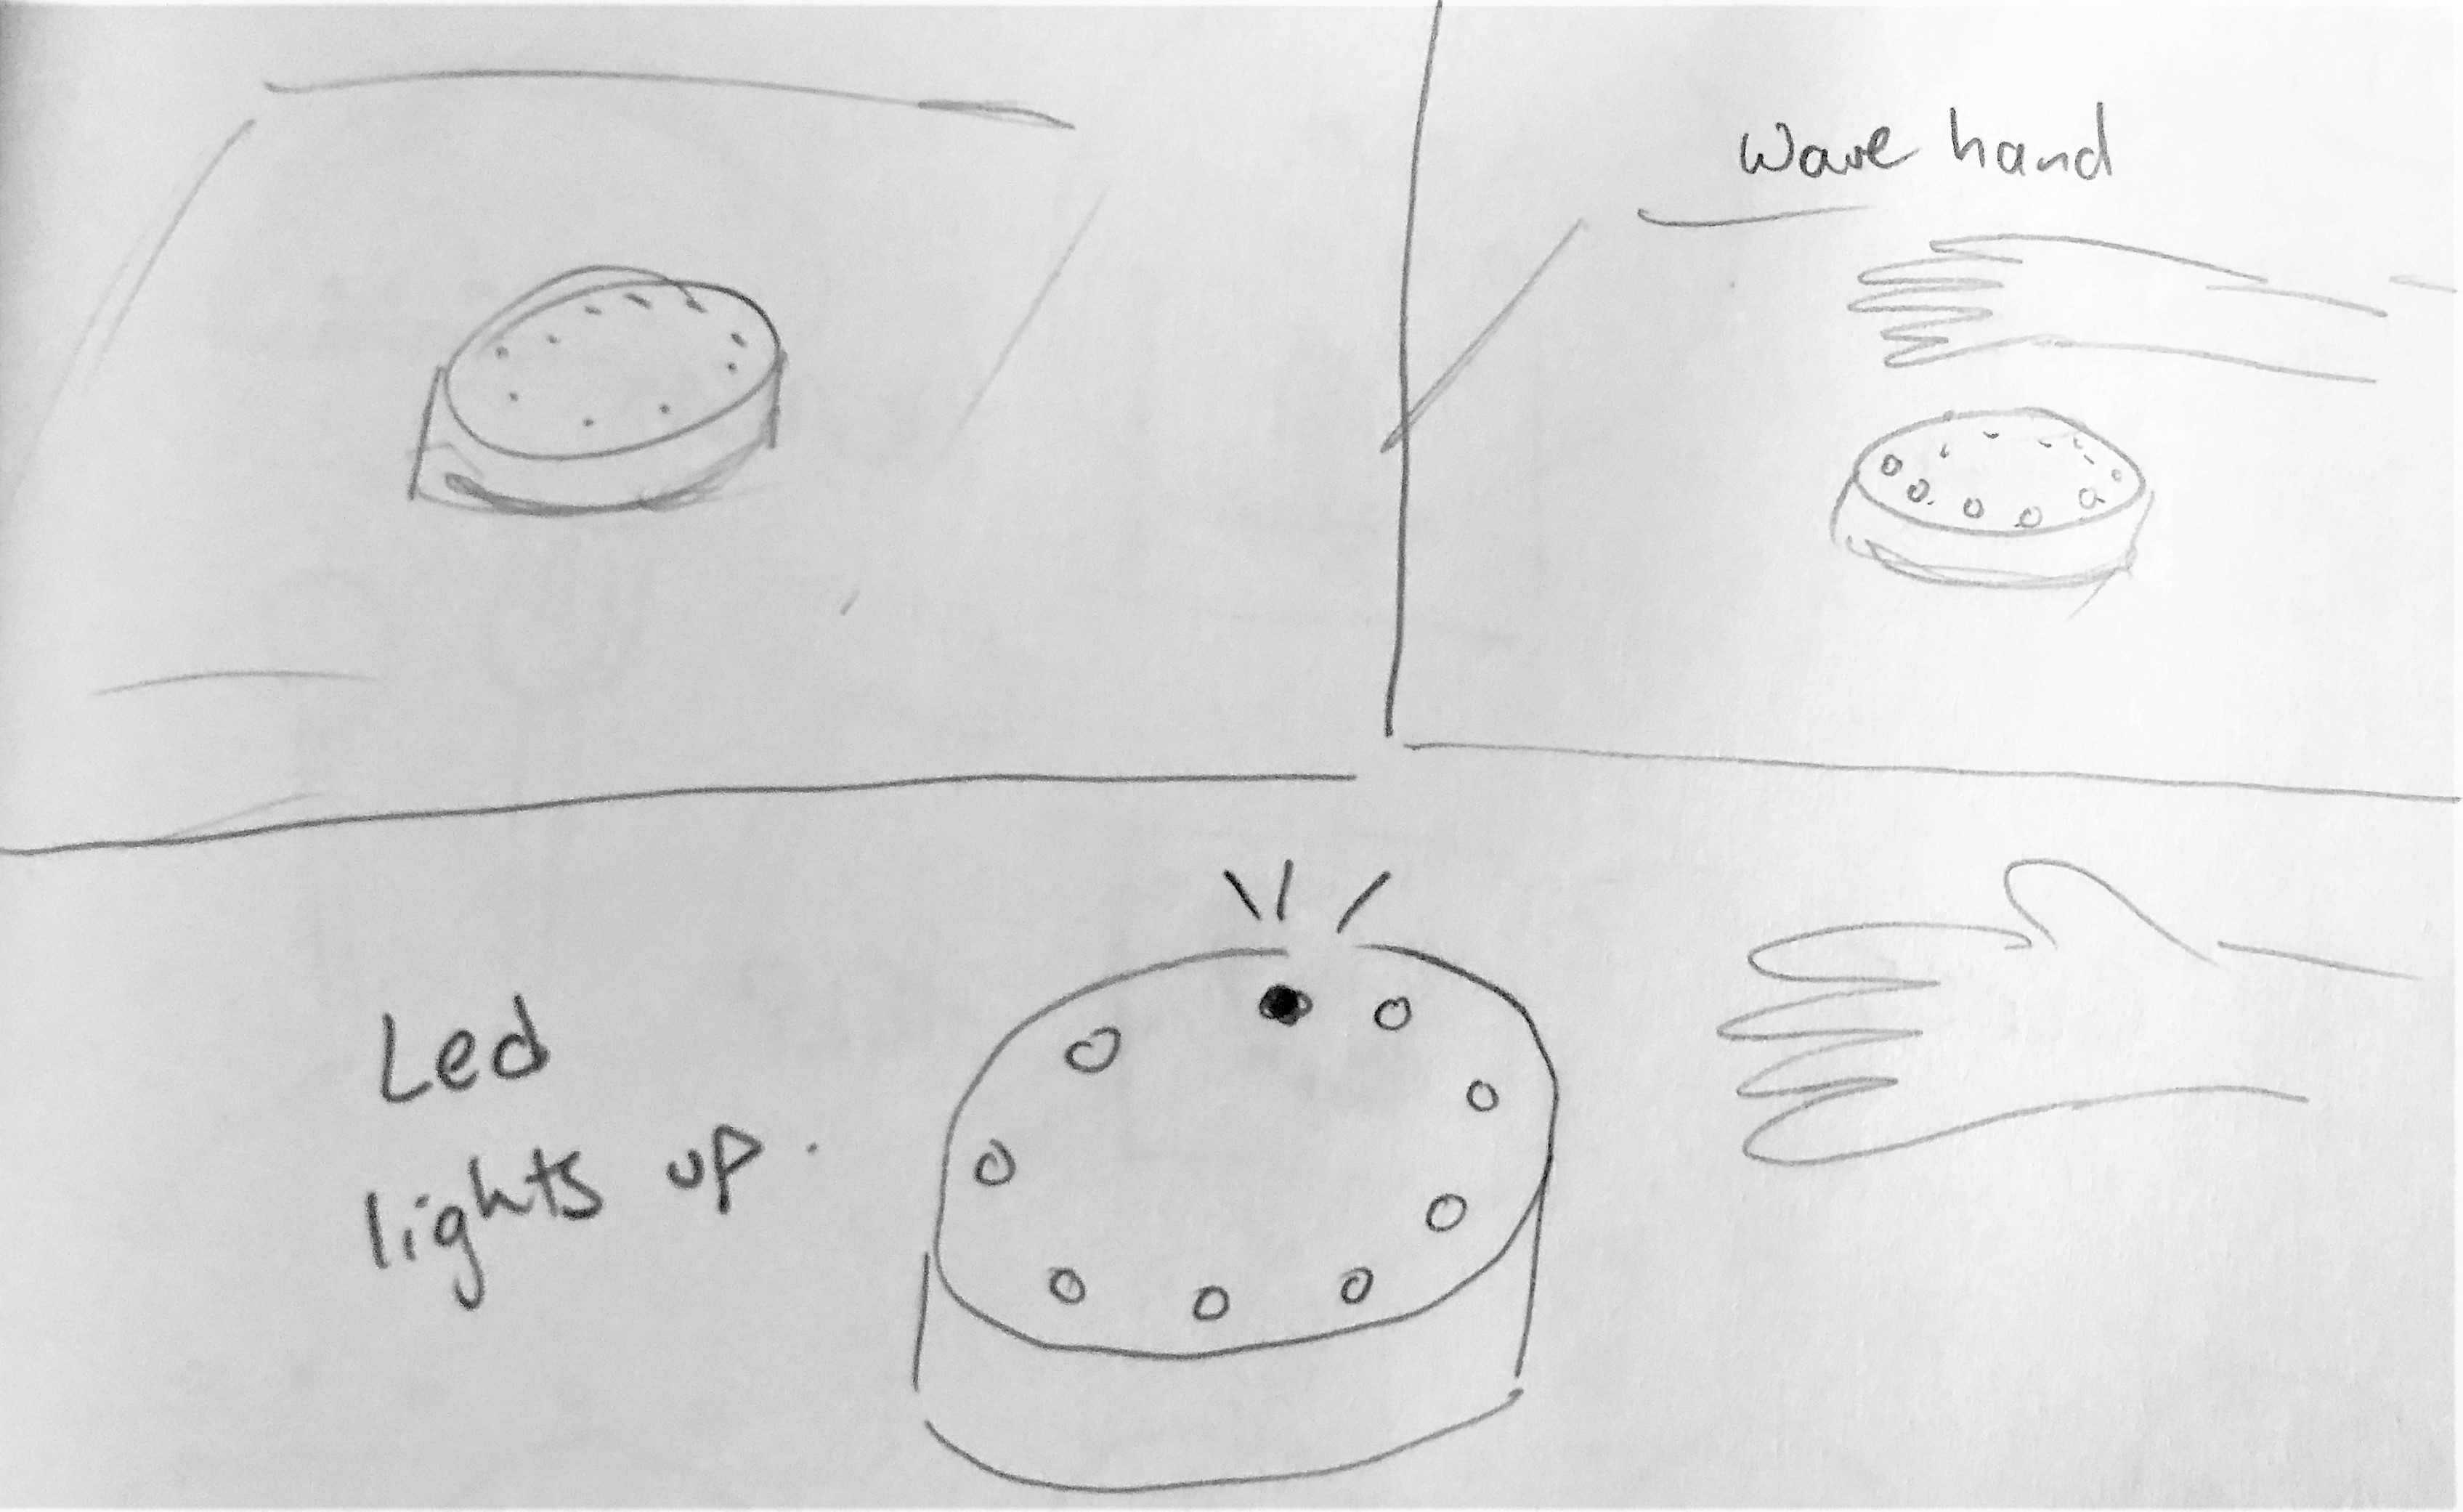 Wave hand
Led
lights up.